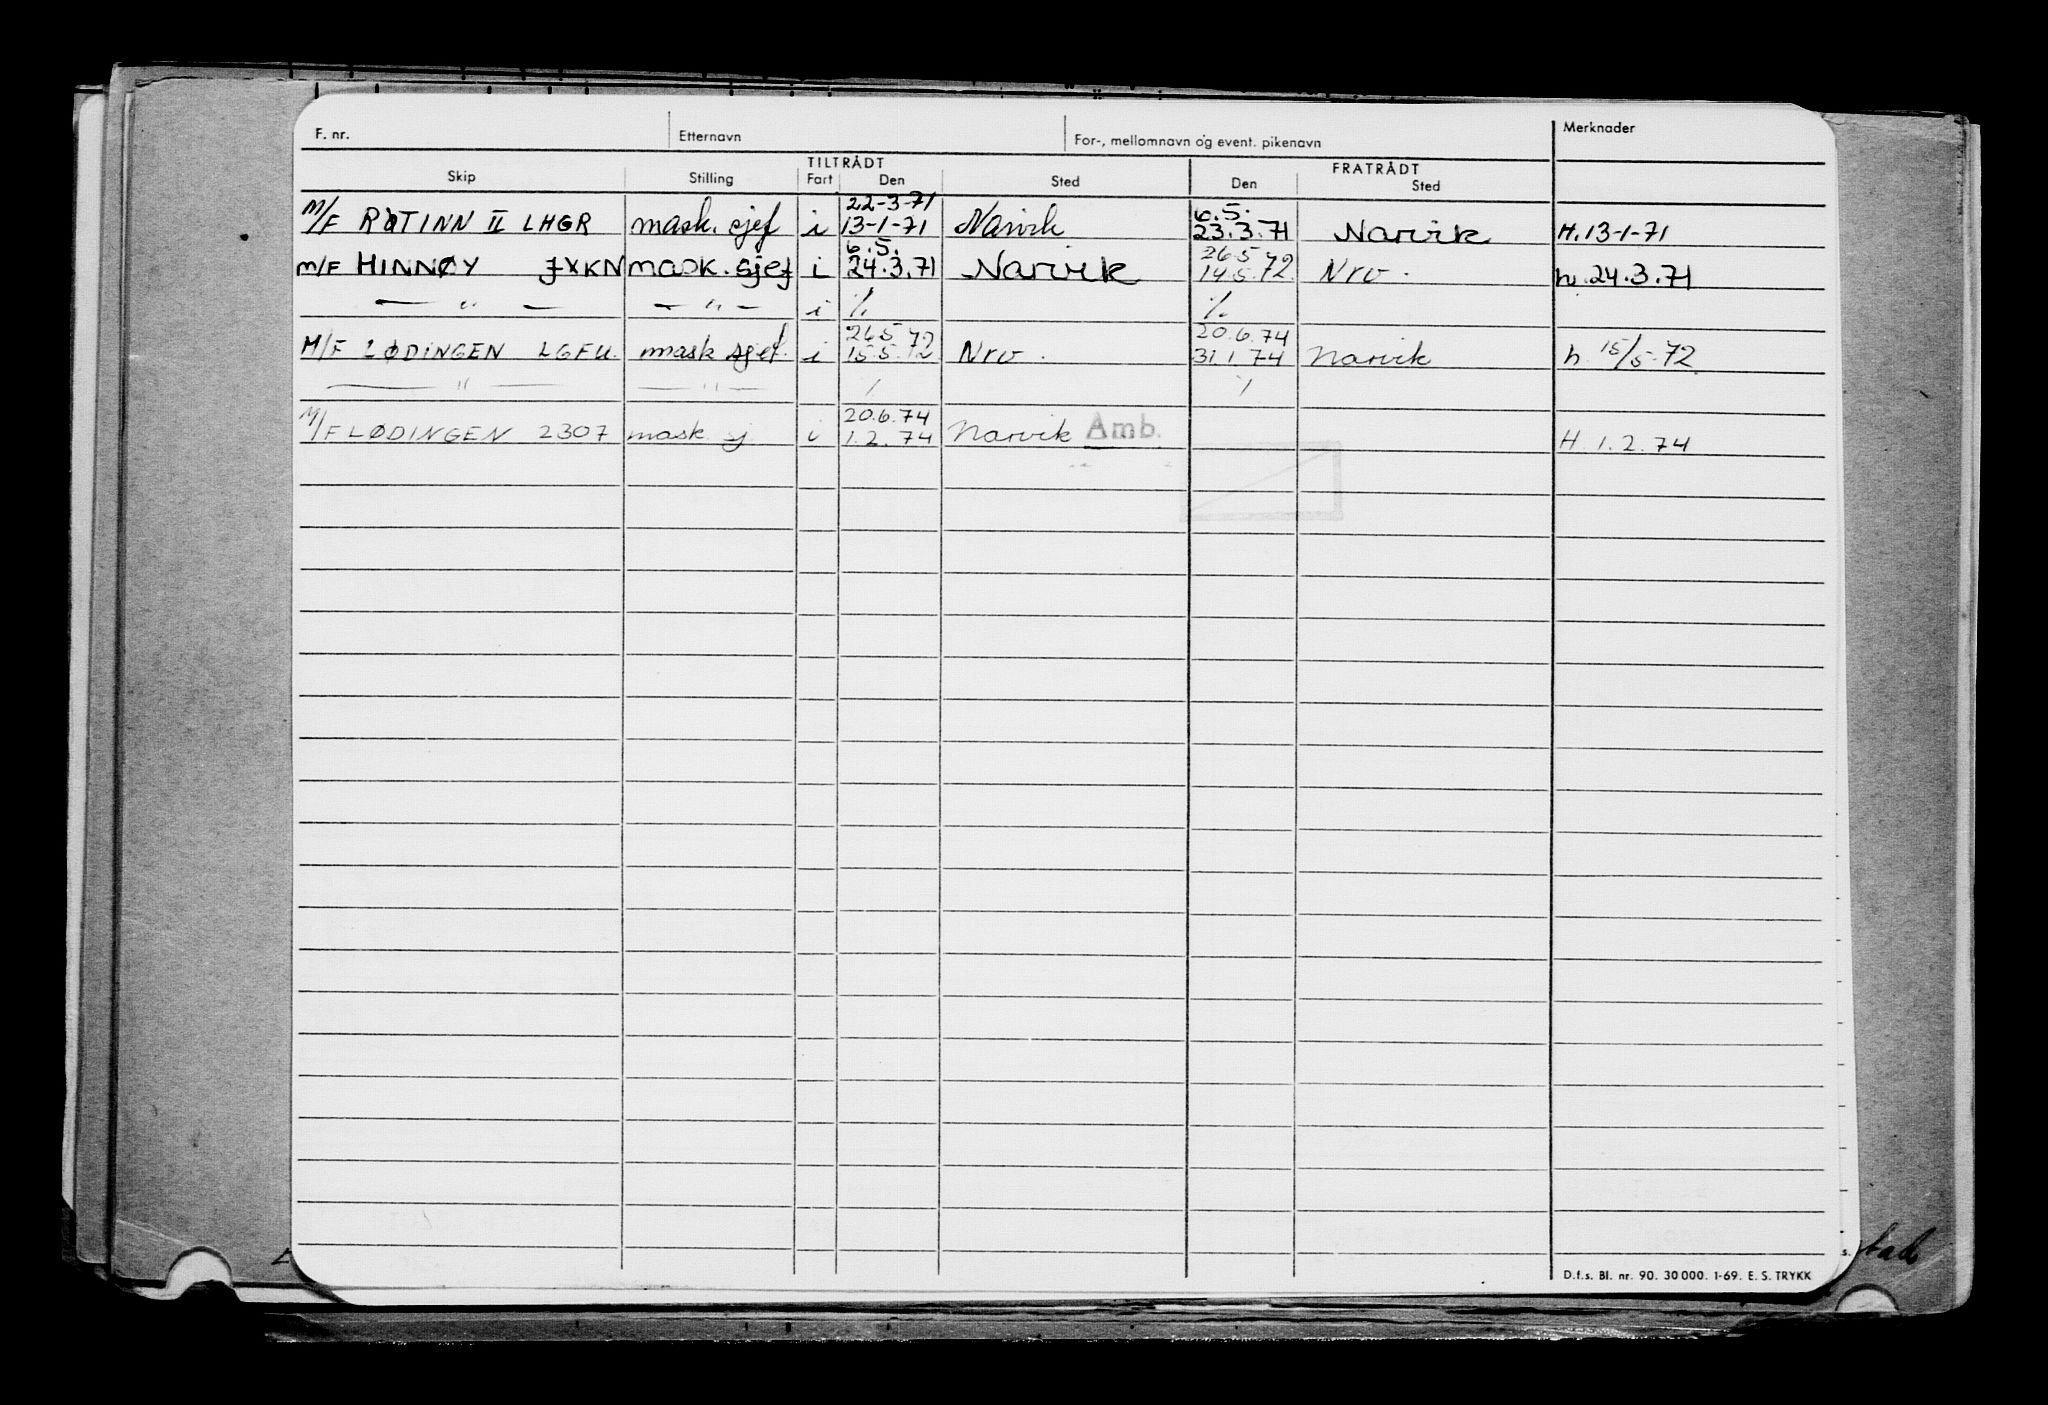 F. nr. Etternavn For-, mellomnavn og event. pikenavn Merknader
TILTRÅDT FRATRÅDT
Skip Stilling Fart Den Sted Den Sted
22-3-71 6.5.
M/F RØTINN II LHGR mask. sjef i 13-1-71 Narvik 23.3.71 Narvik H.13-1-71
6.5. 26.5.72
M/F HINNØY JXKN mask. sjef i 24.3.71 Narvik 14.5.72 Nrv. h.24.3.71
— " — — " — i /. /.
26.5.72 20.6.74
M/F LØDINGEN LGFU. mask sjef. i 15.5.72 Nrv. 31.1.74 Narvik h. 15/5-72
— " — — " — / /
20.6.74
M/F LØDINGEN 2307 mask sj. i 1.2.74 Narvik Amb. H. 1.2.74
s. stad
D.f.s. Bl. nr. 90. 30 000. 1-69. E. S. TRYKK